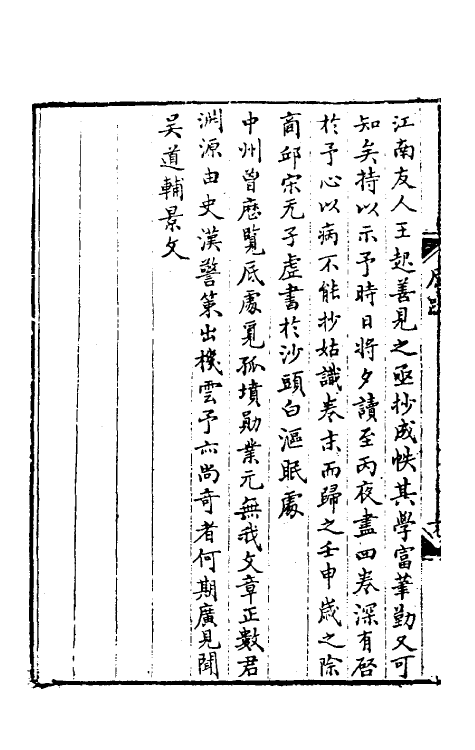 江南友人王起善見之亟抄成帙其學富筆勤又可
知矣持以示予時日將夕讀至丙夜盡四卷深有啓
於予心以病不能抄姑識卷末而歸之壬申歲之除
商邱宋无子虛書於沙頭白漚眠處
中州曾歷覽底處覓孤墳勛業元無我文章正數君
淵源由史漢警策出機雲予亦尚奇者何期廣見聞
吳道輔景文